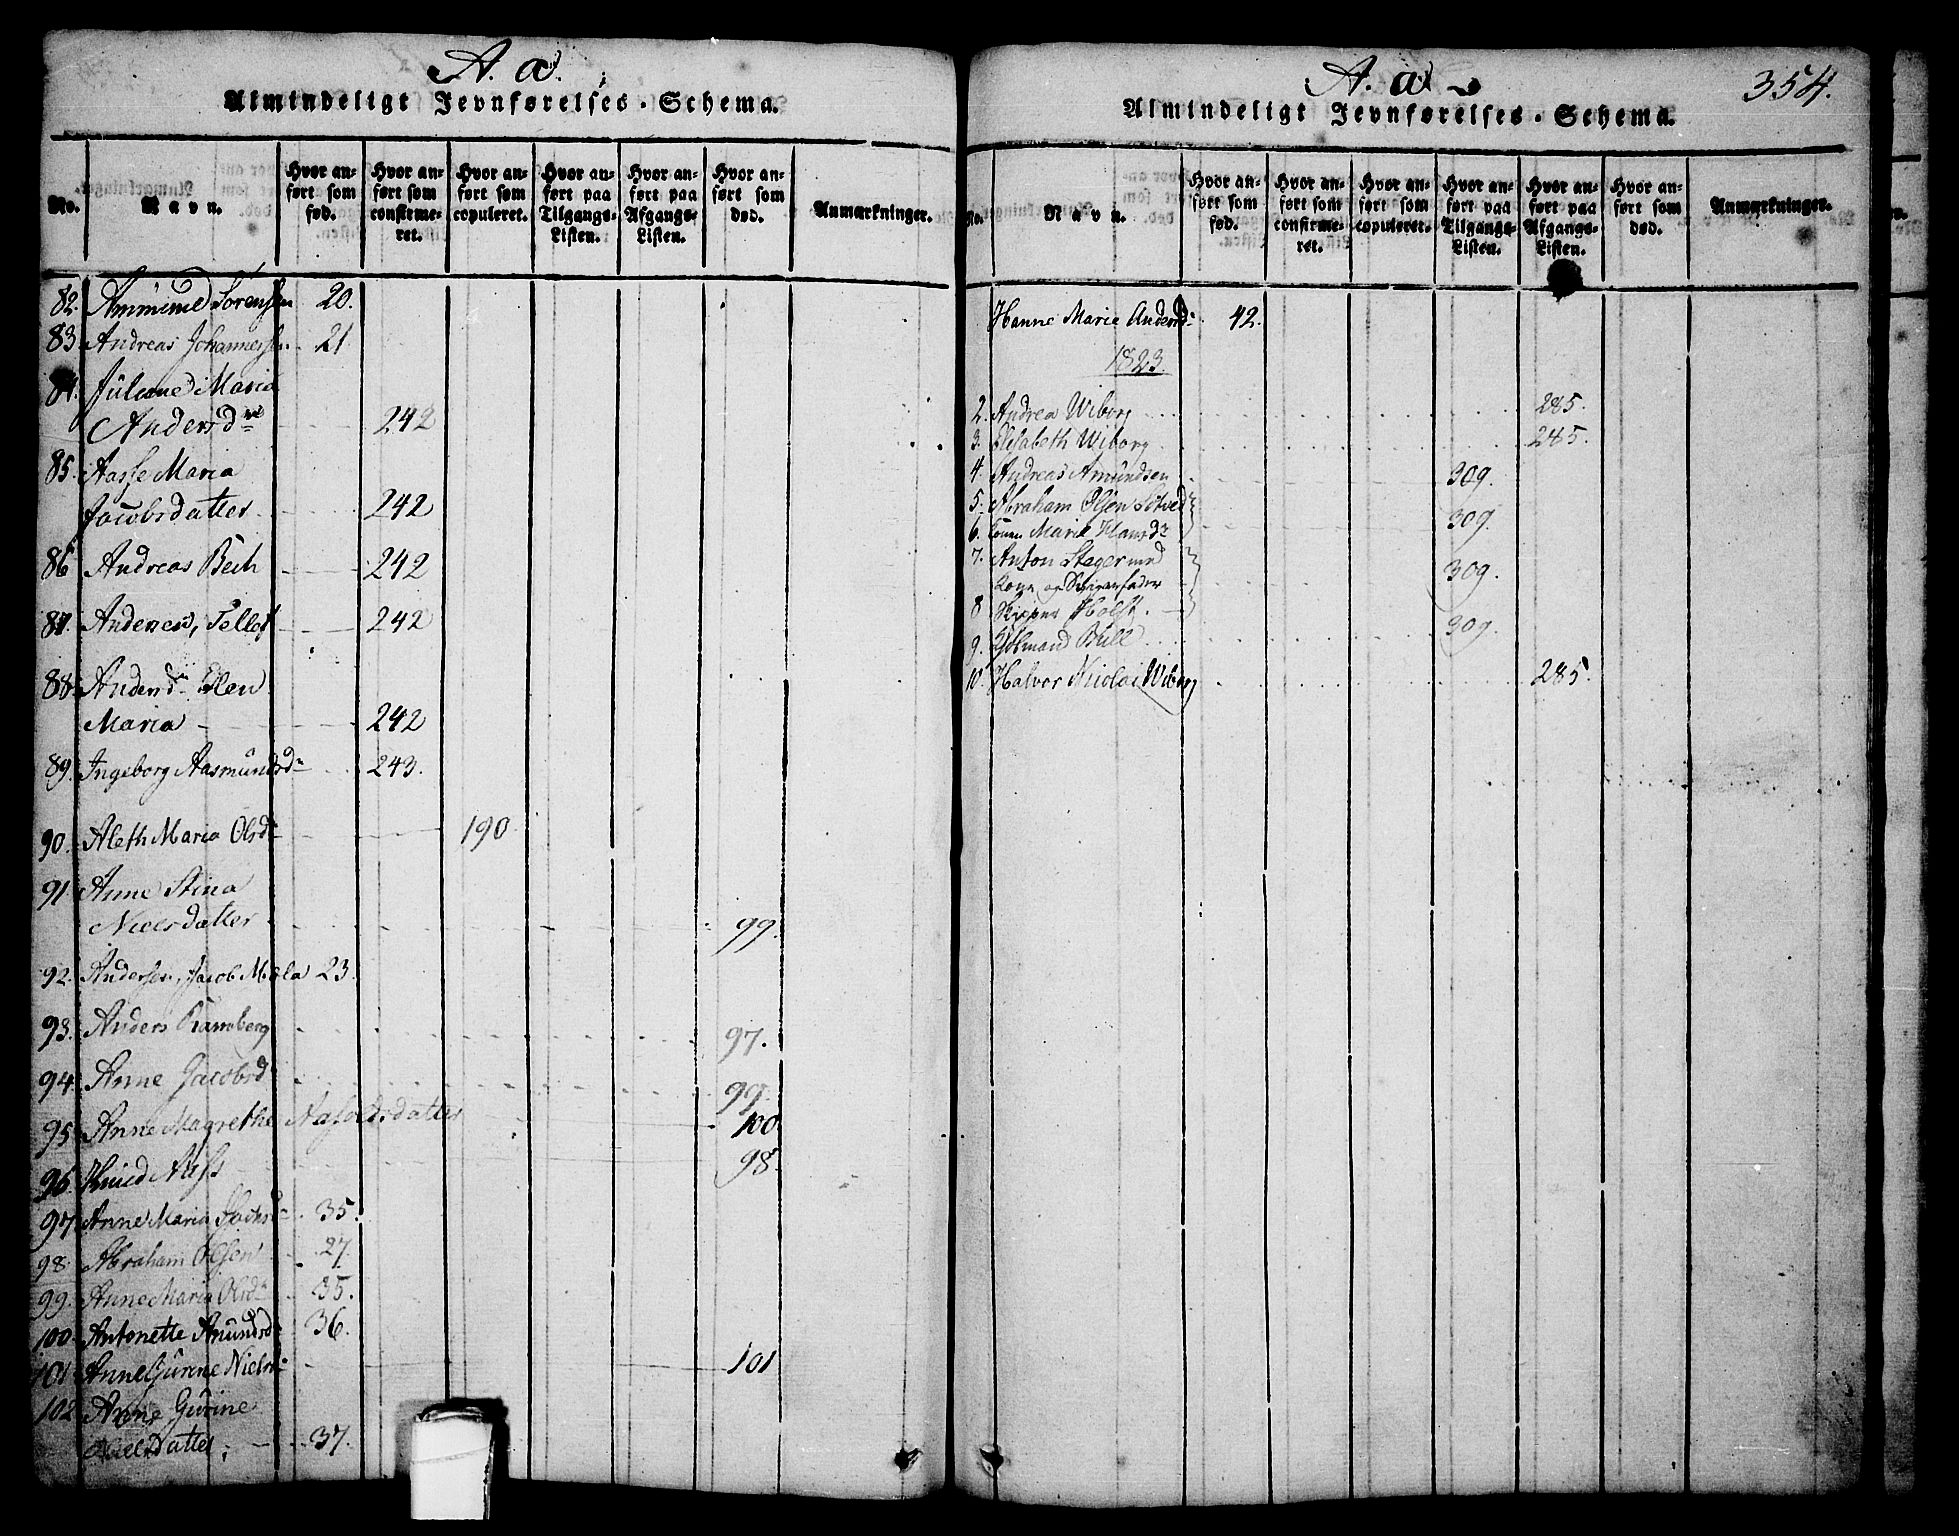 A. a.
Almindeligt Jevnførelses-Schema.
No.
Navn.
Hvor anført som fød.
Hvor anført som confirmeret.
Hvor anført som copuleret.
Hvor anført paa Tilgangs-Listen.
Hvor anført paa Afgangs-Listen.
Hvor anført som død.
Anmærkninger.
82. Sørensen 20.
83. Andreas Johannessen 21
84. Juliane Maria
Andersd. 242
85. Aasse Maria
Jacobsdatter 242
86 Andreas Bech 242
87. Tellef 242
88. Andersd. Elen
Maria 242
89. Ingeborg Aasmundsd. 243.
90. Aleth Maria Olsd. 190
91. Anne Stina
Nielsdatter 99.
92. Andersen, Jacob Mala 23.
93. Anders Ramberg 97.
94. Anne Jacobsd 99.
95. Anne Magrethe 100
96. Knud 98.
97. Anne Maria 35.
98. Abraham Olsen 27.
99. Anne Maria Olsd. 35.
100. Antonette Amundsd. 36.
101. Anne Gurine Nielsd. 101
102 Anne Gurine
37.
A. a
354.
Almindeligt Jevnførelses-Schema.
No.
Navn.
Hvor anført som fød.
Hvor anført som confirmeret.
Hvor anført som copuleret.
Hvor anført paa Tilgangs-Listen.
Hvor anført paa Afgangs-Listen.
Hvor anført som død.
Anmærkninger.
Hanne Marie Andersd. 42.
1823.
2. Andrea Wiborg 285.
3. Elisabeth Wiborg 285.
4. Andreas Amundsen 309.
5. Abraham Olsen
6. Marie Hansd. 309.
7. Anton Steger med
Kone og Svigerfader 309.
8 Skipper Holst.
9. Bull 309.
10. Halvor Nicolai Wiborg 285.